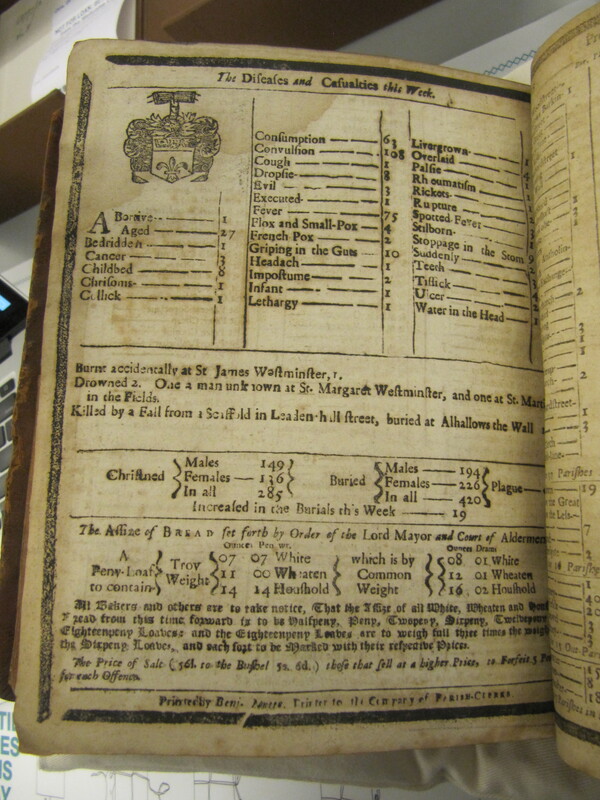 The Diseases and Casualties this Week.
Abortive 1
Aged 27
Bedridden 1
Cancer 3
Childbed 8
Chrisoms 1
Collick 1
Consumption 63
Convulsion 108
Cough 1
Dropsie 8
Evil
Executed 1
Fever 75
Flox and Small-Pox 4
French Pox 2
Griping in the Guts 10
Headach 1
Impostume 2
Infant 1
Lethargy 1
Livergrown
Overlaid
Palsie
Rheumatism
Rickets
Rupture
Spotted Fever
Stilborn
Stoppage in the Stom
Suddenly
Teeth
Tissick
Ulcer
Water in the Head
Burnt accidentally at St James Westminster, 1.
Drowned 2. One a man unknown at St. Margaret Westminster, and one at St. Marti
in the Fields.
Killed by a Fall from a Scaffold in Leaden-hall street, buried at Alhallows the Wall
Christned Males 149 Females 136 In all 285
Buried Males 194 Females 226 In all 420 Plague
Increased in the Burials this Week 19
The Assize of BREAD set forth by Order of the Lord Mayor and Court of Aldermen
Ounces Pen wt. Ounces Dram
A 07 07 White which is by 08 01 White
Peny-Loaf Troy Weight 11 00 Wheaten Common 12 01 Wheaten
to contain 14 14 Houshold Weight 16 02 Houshold
All Bakers and others are to take notice, That the Assize of all White, Wheaten and
Bread from this time forward is to be Halfpeny, Peny, Twopeny, Sixpeny, Twelvepeny
Eighteenpeny Loaves and the Eighteenpeny Loaves are to weigh full three times the weigh
the Sixpeny Loaves, and each sort to be Marked with their respective Prices.
The Price of Salt (56l. to the Bushel 5s. 6d.) those that sell at a higher Price, to Forfeit 5
for each Offence.
Printed by Benj. Printer to the Company of Parish-Clerks.